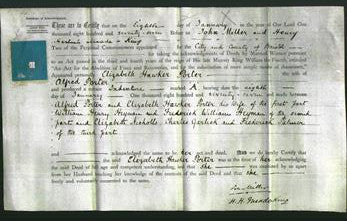 These are to Certify that on the eighth day of January in the year of Our Lord One
thousand eight hundred and seventy seven Before us John Miller and Henry
Herbert a King
Two of the Perpetual Commissioners appointed for the City and County of Bristol
for taking the acknowledgments of Deeds by Married Women pursuant
to an Act passed in the third and fourth years of the reign of His late Majesty King William the Fourth, intituled
"An Act for the Abolition of Fines and Recoveries, and for the substitution of more simple modes of Assurance,"
Appeared personally Elizabeth Hawker Porter the wife of
Alfred Porter
and produced a certain Indenture marked A bearing date the eighth
day of January One thousand eight hundred and seventy seven and made between
Alfred Porter and Elizabeth Hawker Porter his Wife of the first part
William Henry Heyman and Frederick William Heyman of the second
part and Elizabeth Nicholls Charles Gerlick and Frederick Palmer
of the third part
and acknowledged the same to be her act and deed. And we do hereby Certify that
the said Elizabeth Hawker Porter was at the time of her acknowledging
the said Deed of full age and competent understanding, and that she was examined by us apart
from her Husband touching her knowledge of the contents of the said Deed and that she
freely and voluntarily consented to the same.
Jno Miller